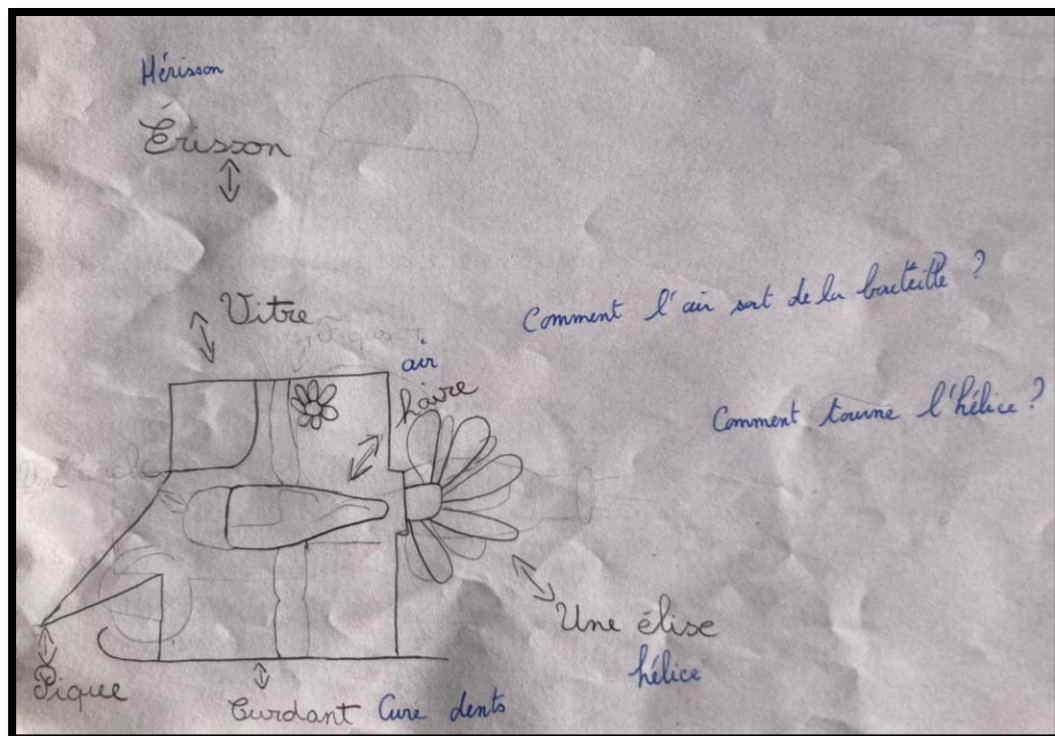 Hérisson
Érisson
Vitre
air
haire
Comment l'air sort de la bouteille ?
Comment tourne l'hélice ?
Une élise
hélice
Pique
Curdant Cure dents